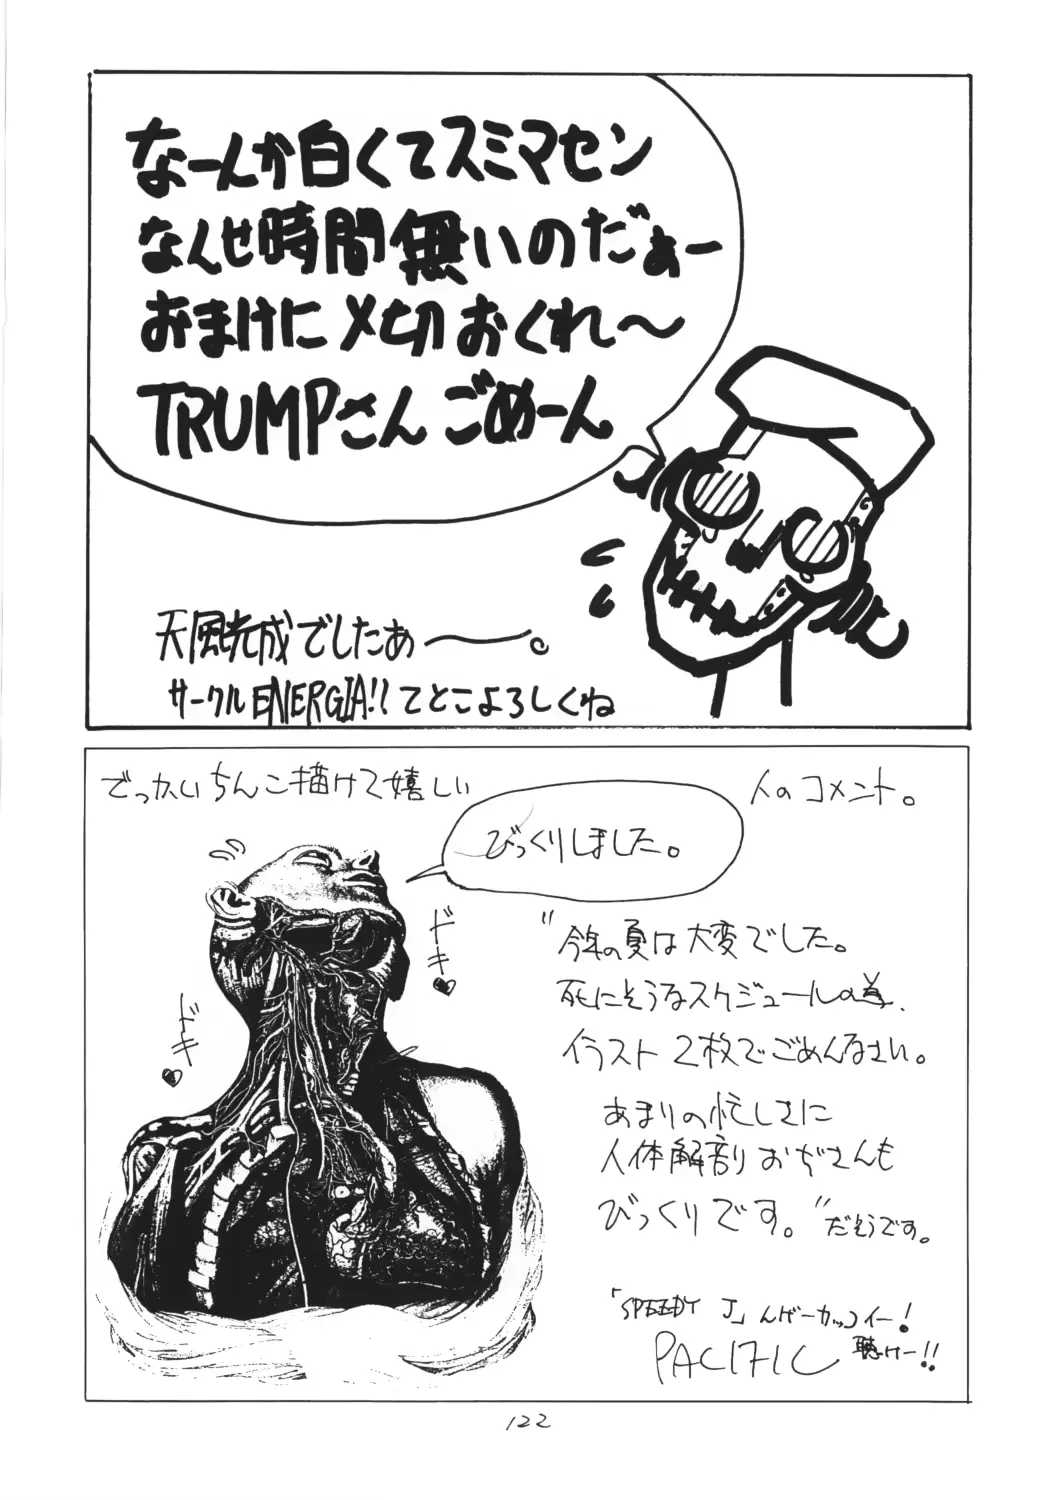 なーんか白くてスミマセン
なんせ時間無いのだぁー
おまけに〆切おくれ〜
TRUMPさんごめーん
天風光成でしたあー。
サークルENERGIA!!てとこよろしくね
でっかいちんこ描けて嬉しい人のコメント。
びっくりしました。
ドキ♥
ドキ♥
"今年の夏は大変でした。
死にそうなスケジュールの為、
イラスト2枚でごめんなさい。
あまりの忙しさに
人体解剖おぢさんも
びっくりです。"だそうです。
「SPEEDY J」んげーカッコイー!
聴けー!!
PACIFIC
122